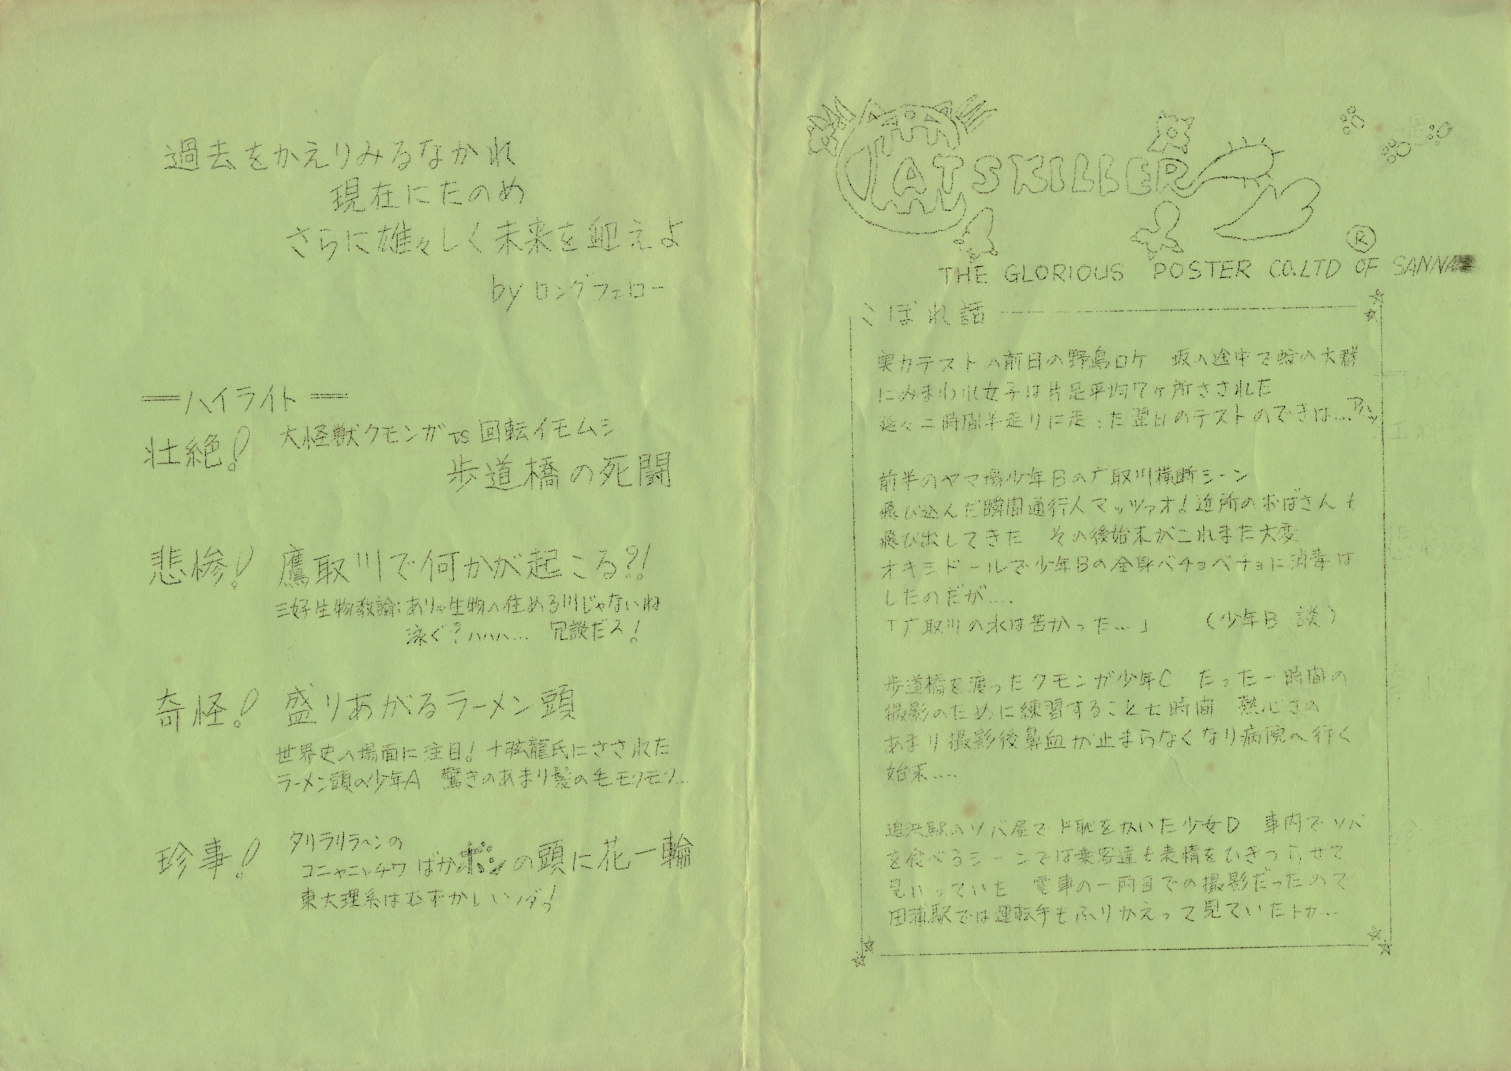 過去をかえりみるなかれ
現在にたのめ
さらに雄々しく未来を迎えよ
by ロングフェロー
＝ハイライト＝
壮絶! 大怪獣クモンガ vs 回転イモムシ
歩道橋の死闘
悲惨! 鷹取川で何かが起こる?!
三好生物教諭:ありゃ生物の住める川じゃないね
泳ぐ?ハハハ… 冗談だろ!
奇怪! 盛りあがるラーメン頭
世界史の場面に注目! 十弦龍氏にさされた
ラーメン頭の少年A 驚きのあまり髪の毛モクモク…
珍事! タリラリラ〜ンの
コニャニャチワ ばかボンの頭に花一輪
東大理系はむずかしいノダ!
CATSKILLER
®
THE GLORIOUS POSTER CO.LTD OF SANNA
こぼれ話
実力テストの前日の野島ロケ 坂の途中で蚊の大群
にみまわれ女子は片足平均7ヶ所さされた
延々二時間半走りに走った翌日のテストのできは…アハッ
前半のヤマ場少年Bの广取川横断シーン
飛び込んだ瞬間通行人マッツァオ!近所のおばさんも
飛び出してきた その後始末がこれまた大変
オキシドールで少年Bの全身ベチョベチョに消毒は
したのだが….
「广取川の水は苦かった…」 (少年B 談)
歩道橋を渡ったクモンガ少年C たった一時間の
撮影のために練習すること七時間 熱心さの
あまり撮影後鼻血が止まらなくなり病院へ行く
始末….
追浜駅のソバ屋でド恥をかいた少女D 車内でソバ
を食べるシーンでは乗客達も表情をひきつらせて
見いっていた 電車の一両目での撮影だったので
田浦駅では運転手もふりかえって見ていたトカ…